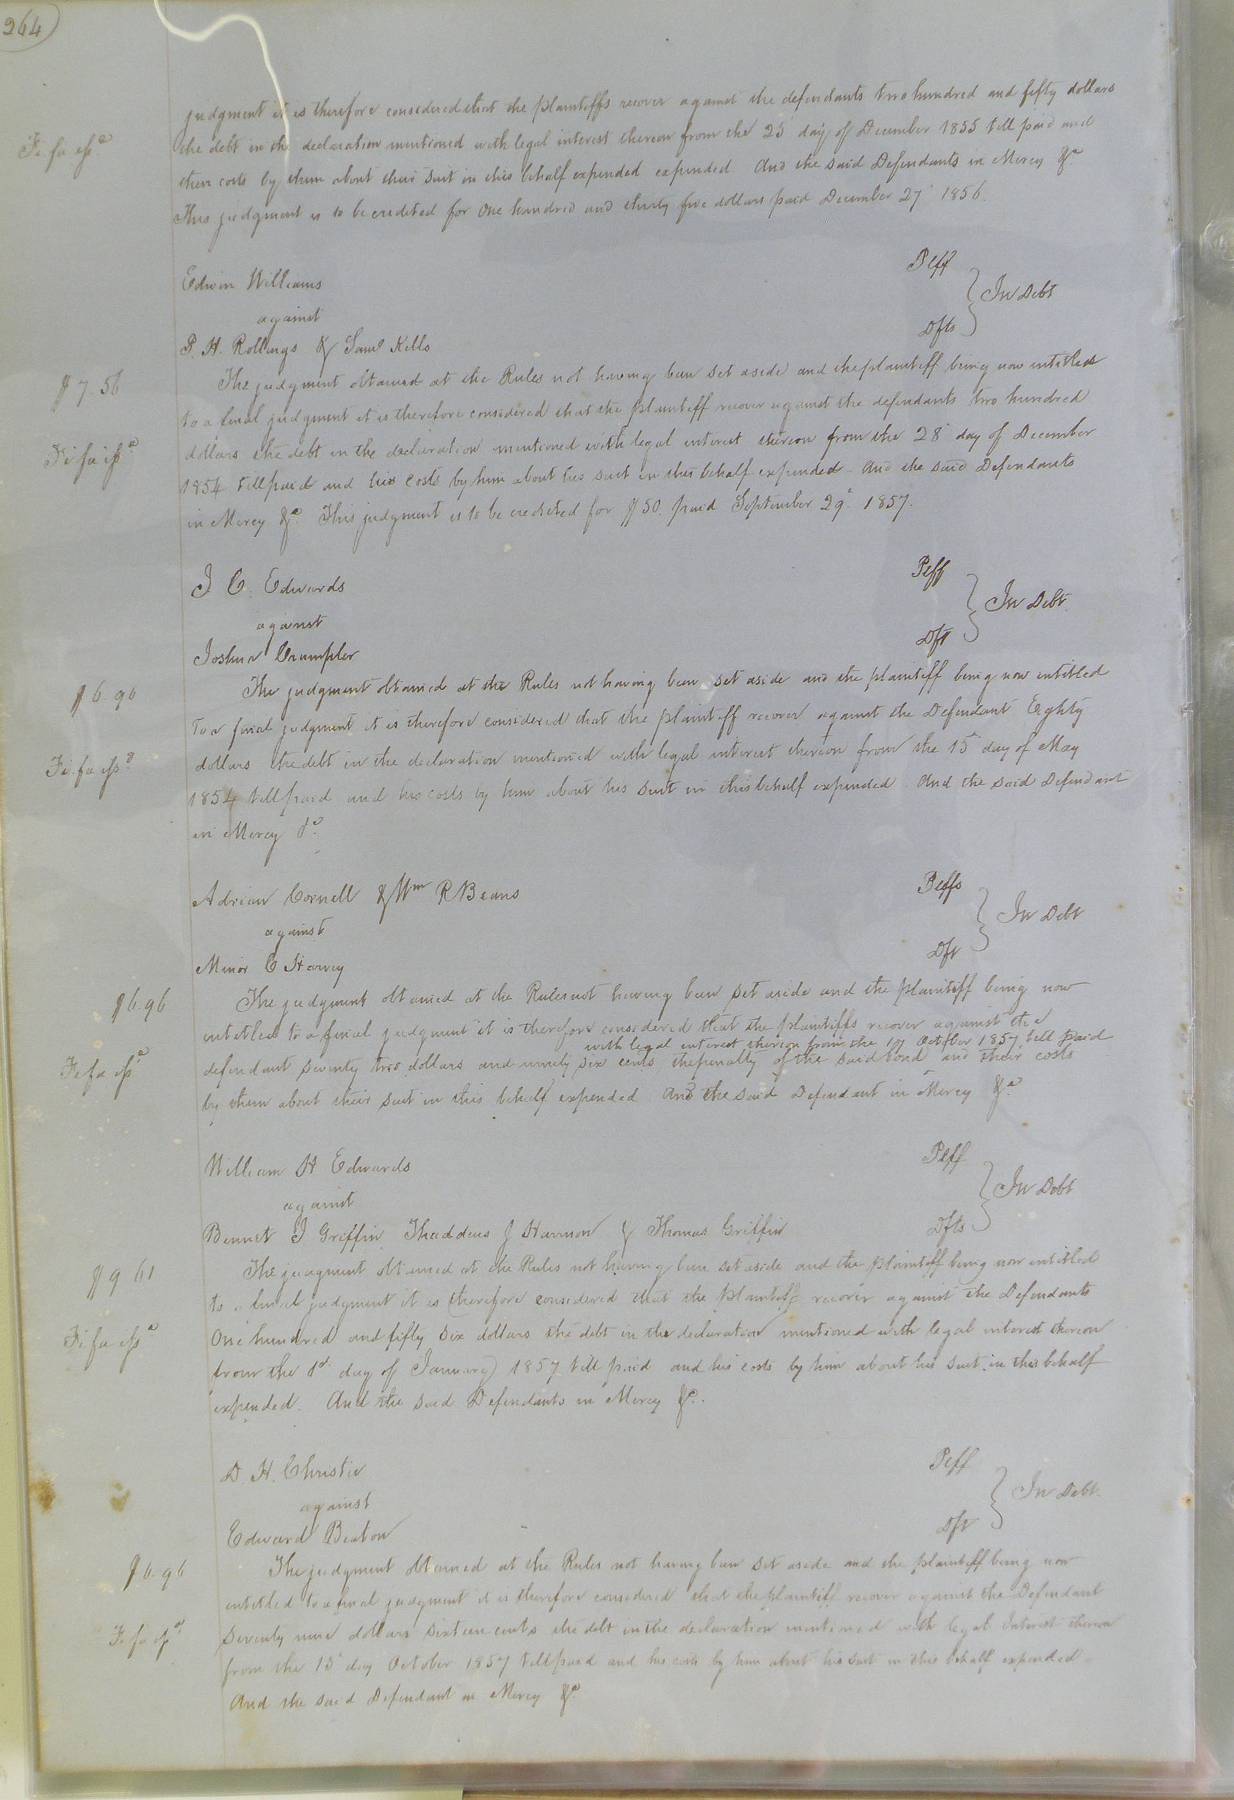 264
judgment it is therefore considered that the plaintiffs recover against the defendants two hundred and fifty dollars
Fi fa issd
the debt in the declaration mentioned with legal interest thereon from the 25 day of December 1855 till paid and
their costs by them about their suit in this behalf expended expended And the said Defendants in Mercy &c
This judgment is to be credited for One hundred and thirty five dollars paid December 27 1856.
Edwin Williams Plff
against In Debt
P. H. Rollings & Saml Kells Dfts
The judgment obtained at the Rules not having been set aside and the plaintiff being now entitled
$7.56
to a final judgment it is therefore considered that the plaintiff recover against the defendants two hundred
dollars the debt in the declaration mentioned with legal interest thereon from the 28 day of December
Fi fa issd
1854 till paid and his costs by him about his suit in this behalf expended And the said Defendants
in Mercy &c. This judgment is to be credited for $50. paid September 29th 1857.
J C. Edwards Plff
against In Debt.
Joshua Crumpler Dft
The judgment obtained at the Rules not having been set aside and the plaintiff being now entitled
$6.96
to a final judgment it is therefore considered that the plaintiff recover against the Defendant Eighty
dollars the debt in the declaration mentioned with legal interest thereon from the 15 day of May
Fi. fa issd
1854 till paid and his costs by him about his suit in this behalf expended And the said Defendant
in Mercy &c.
Adrian Cornell & Wm R Beans Plffs
against In Debt
Minor C Harvey Dft
The judgment obtained at the Rules not having been set aside and the plaintiff being now
$6.96
entitled to a final judgment it is therefore considered that the plaintiffs recover against the
with legal interest thereon from the 17 October 1857 till paid
defendant Seventy two dollars and ninety six cents the penalty of the said bond and their costs
Fi fa issd
by them about their suit in this behalf expended And the said Defendant in Mercy &c
William H Edwards Plff
against In Debt
Bennet J Griffin Thaddeus J Harmon & Thomas Griffin Dfts
The judgment obtained at the Rules not having been set aside and the plaintiff being now entitled
$9.61
to a final judgment it is therefore considered that the plaintiff recover against the Defendants
One hundred and fifty six dollars the debt in the declaration mentioned with legal interest thereon
Fi. fa issd
from the 1st day of January 1857 till paid and his costs by him about his suit in this behalf
expended. And the said Defendants in Mercy &c.
D. H. Christie Plff
against In Debt.
Edward Beaton Dft
The judgment obtained at the Rules not having been set aside and the plaintiff being now
$6.96
entitled to a final judgment it is therefore considered that the plaintiff recover against the Defendant
Seventy nine dollars sixteen cents the debt in the declaration mentioned with legal Interest thereon
Fi fa issd
from the 15 day October 1857 till paid and his costs by him about his suit in this behalf expended
And the said Defendant in Mercy &c